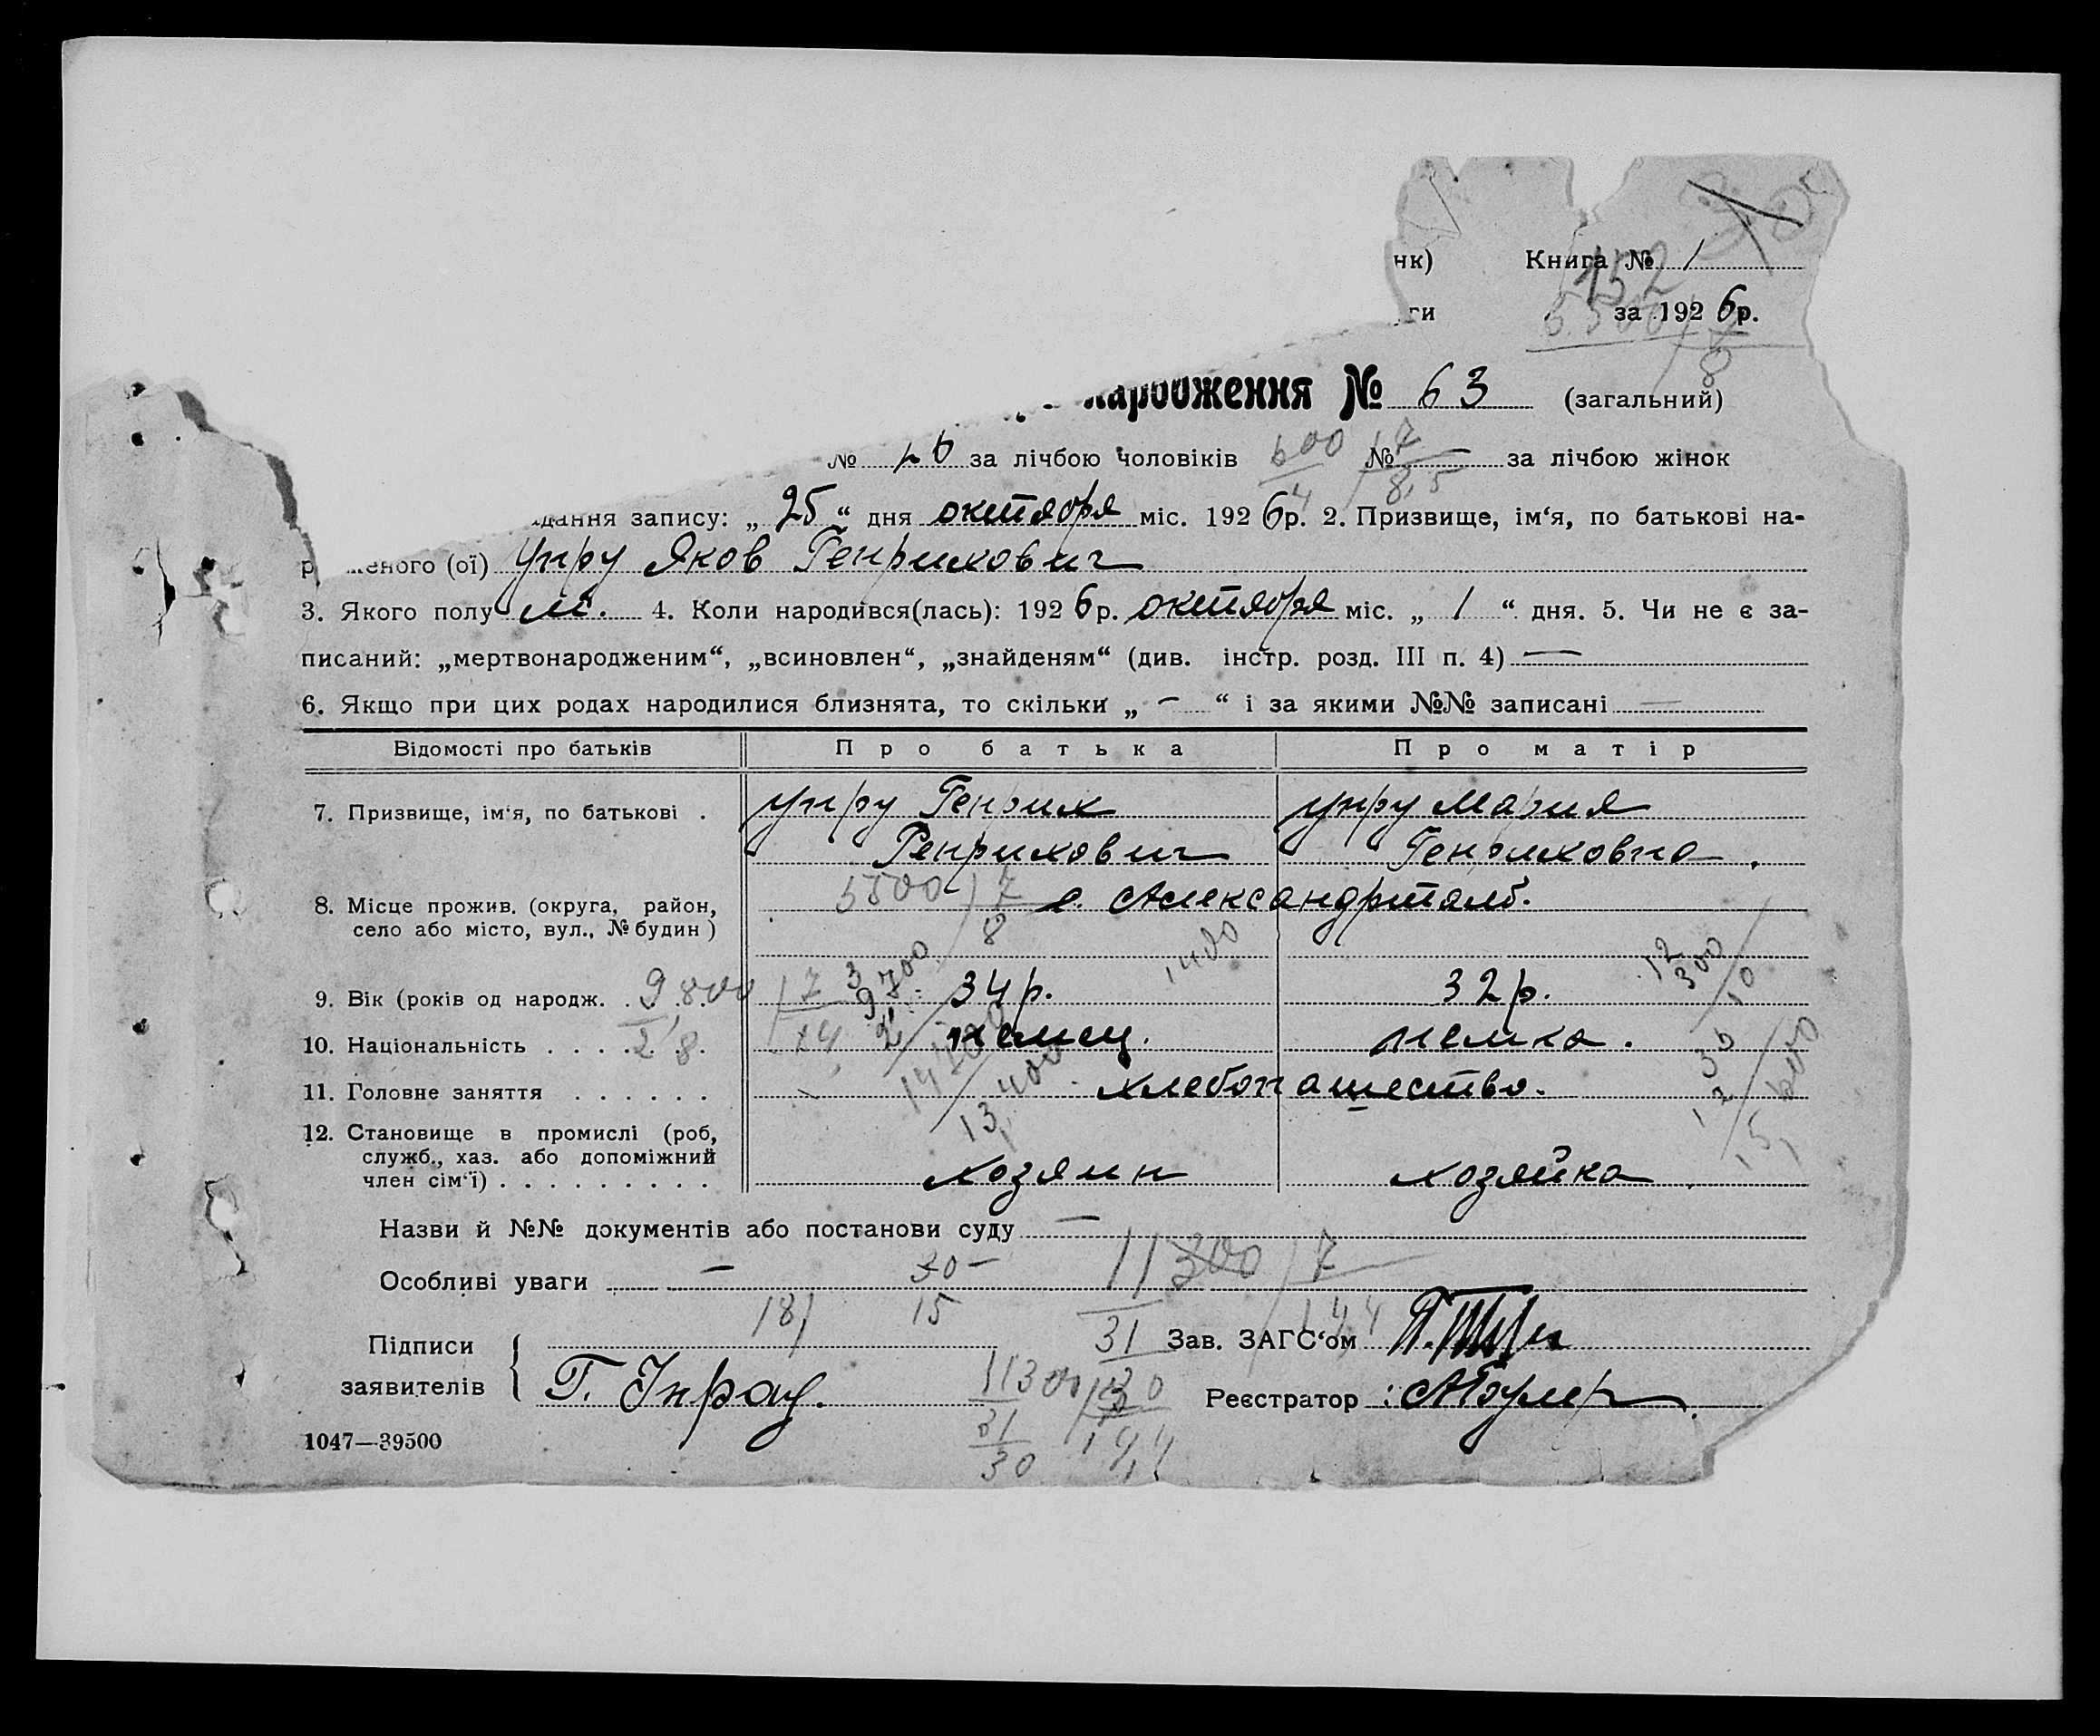 нк) Книга № 1
ги за 1926р.
народження № 63 (загальний)
№ за лічбою чоловіків № за лічбою жінок
дання запису: „25“ дня октября міс. 1926р. 2. Призвище, ім‘я, по батькові на-
еного (ої) Унру Яков Генрихович
3. Якого полу м. 4. Коли народився(лась): 1926р. октября міс. „1“ дня. 5. Чи не є за-
писаний: „мертвонародженим“, „всиновлен“, „знайденям“ (див. інстр. розд. III п. 4) —
6. Якщо при цих родах народилися близнята, то скільки „ — “ і за якими №№ записані —
Відомості про батьків Про батька Про матір
7. Призвище, ім‘я, по батькові . Унру Генрих Унру Мария
Генрихович Генриховна.
8. Місце прожив. (округа, район, с. Александрталь.
село або місто, вул., № будин)
5500 7
8
1400
9. Вік (років од народж. 34 р. 32 р.
9,800 7
14
2,8
10. Національність . . . . . . немец. немка.
11. Головне заняття . . . . . . хлебопашество.
12. Становище в промислі (роб,
служб., хаз. або допоміжний
член сім‘ї) . . . . . . . . . хозяин хозяйка
Назви й №№ документів або постанови суду —
Особливі уваги — 30-
11300 7
18, 15
31
Підписи Зав. ЗАГС‘ом
заявителів Г. Унрау. Реєстратор:
11300 30
31
30
1047—39500